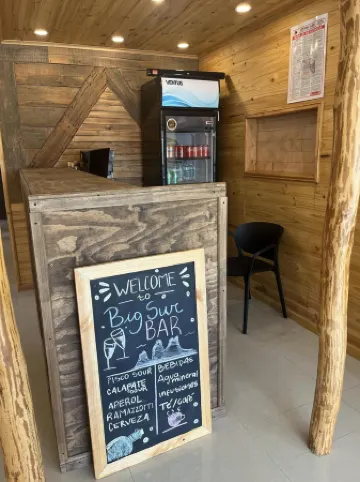 VENTUS
WELCOME
to
Big Sur
BAR
PISCO SOUR
CALAFATE
SOUR
APEROL
RAMAZZOTTI
CERVEZA
BEBIDAS
Agua
mineral
infusiones
Té/café